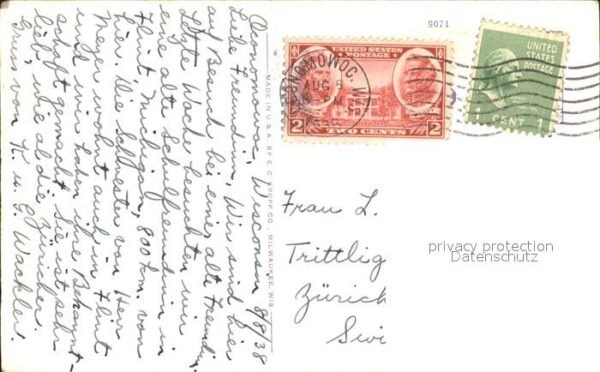 Oconomowoc, Wisconsin 8/8/38
Liebe Freundinn, Wir sind hier
auf Besuch bei einer alte Freundin.
Letzte Woche besuchten wir
eine alte Schulfreundinn in
Flint, Michigan, 800 km. von
hier. Die Schwester von Herr
wohnt auch in Flint
und wir haben ihre Bekannt-
schaft gemacht. Sie ist sehr
lieb, wie al die Züricher.
Grüss von K. u. G. Wackler.
MADE IN U.S.A. BY E. C. KROPP CO., MILWAUKEE, WIS.
9071
UNITED STATES POSTAGE
2 TWO CENTS 2
OCONOMOWOC, WI
AUG 9
UNITED
STATES
POSTAGE
CENT 1
Frau L.
Trittlig
Zürich
privacy protection
Datenschutz